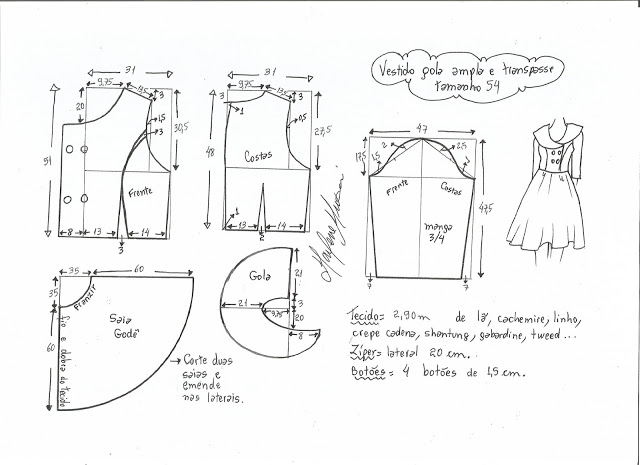 Vestido gola ampla e transpasse
tamanho 54
31
9,75
13,5
3
20
1,5
3
30,5
51
Frente
8
13
14
3
31
9,75
13,5
3
3
1
0,5
27,5
48
Costas
1
13
14
2
47
17,5
1,5
2
2,5
1
Frente
Costas
47,5
manga
3/4
7
7
35
60
35
Franzir
60
Saia
Godê
fio e dobra do tecido
Corte duas
saias e
emende
nas laterais.
Gola
21
21
3
9,75
20
8
Tecido= 2,90m de lã, cachemire, linho,
crepe cadena, shantung, gabardine, tweed...
Zíper= lateral 20 cm.
Botões= 4 botões de 1,5 cm.